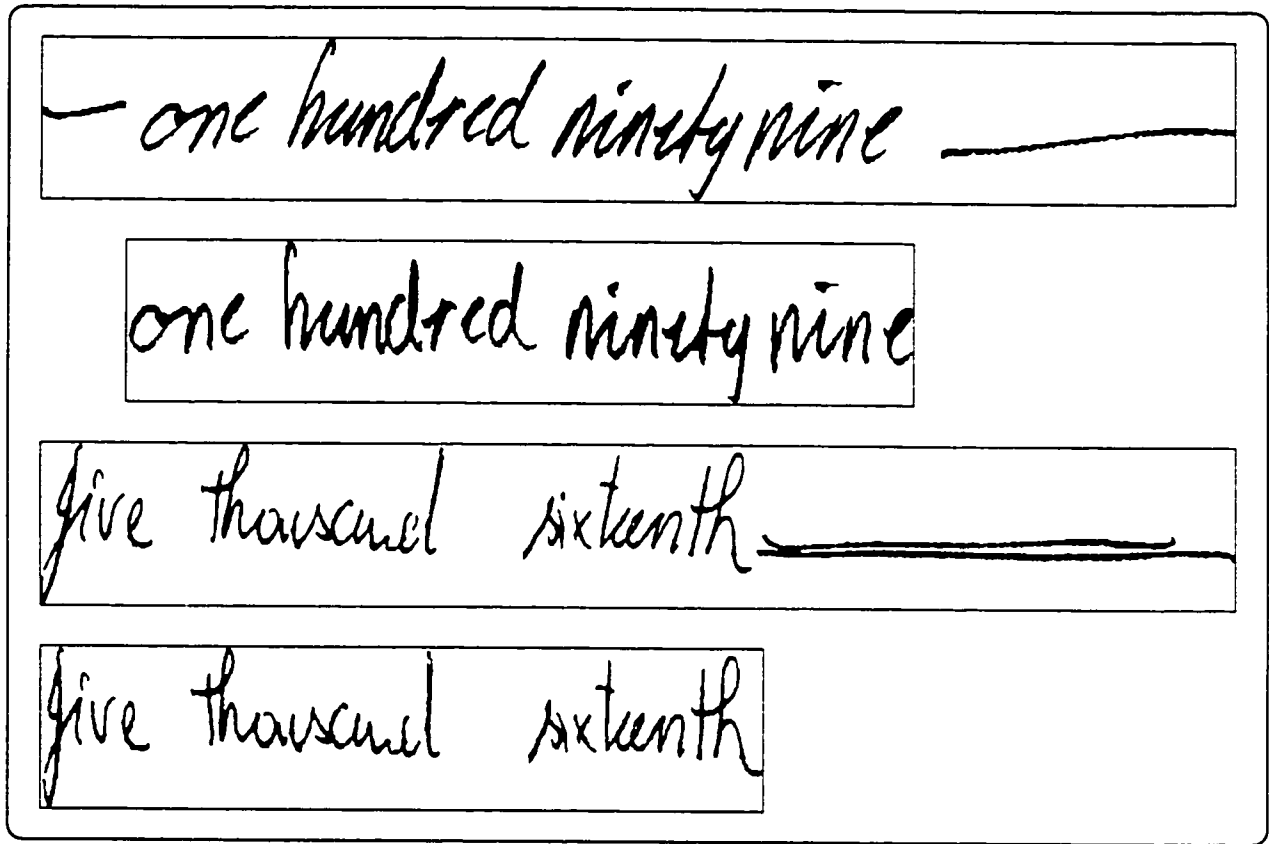 one hundred ninety nine
one hundred ninety nine
five thousand sixteenth
five thousand sixteenth